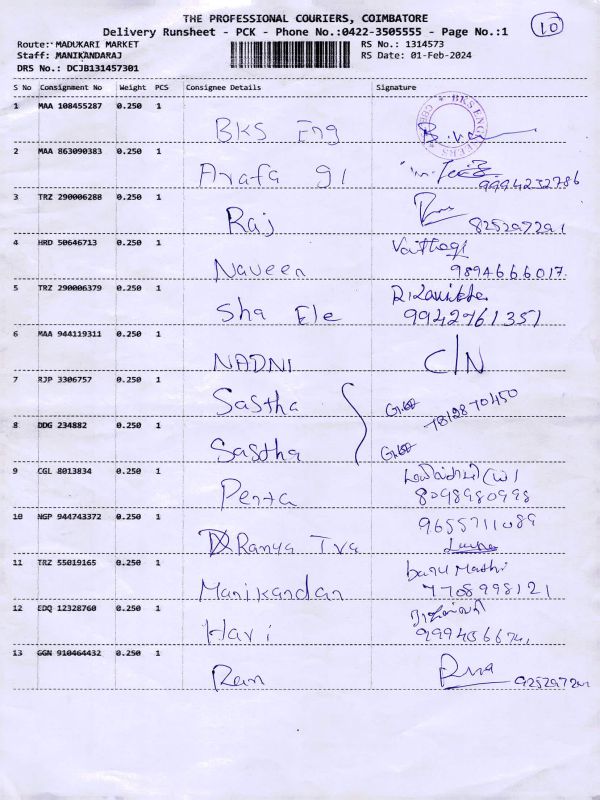 THE PROFESSIONAL COURIERS, COIMBATORE
Delivery Runsheet - PCK - Phone No.:0422-3505555 - Page No.:1
10
Route: MADUKARI MARKET RS No.: 1314573
Staff: MANIKANDARAJ RS Date: 01-Feb-2024
DRS No.: DCJB131457301
S No Consignment No Weight PCS Consignee Details Signature
1 MAA 108455287 0.250 1
BKS Eng
2 MAA 863090383 0.250 1
Arafa 91 9994232786
3 TRZ 290006288 0.250 1
Raj
4 HRD 50646713 0.250 1
Naveen 9894666017
5 TRZ 290006379 0.250 1
Sha Ele 9942761351
6 MAA 944119311 0.250 1
NADNI C/N
7 RJP 3306757 0.250 1
Sastha 7812870450
8 DDG 234882 0.250 1
Sastha
9 CGL 8013834 0.250 1
Penta 8098980998
10 NGP 944743372 0.250 1 9655711089
Ranya
11 TRZ 55019165 0.250 1 banu Mathi
Manikandan 7708998121
12 EDQ 12328760 0.250 1
Hari
13 GGN 910464432 0.250 1
Ram